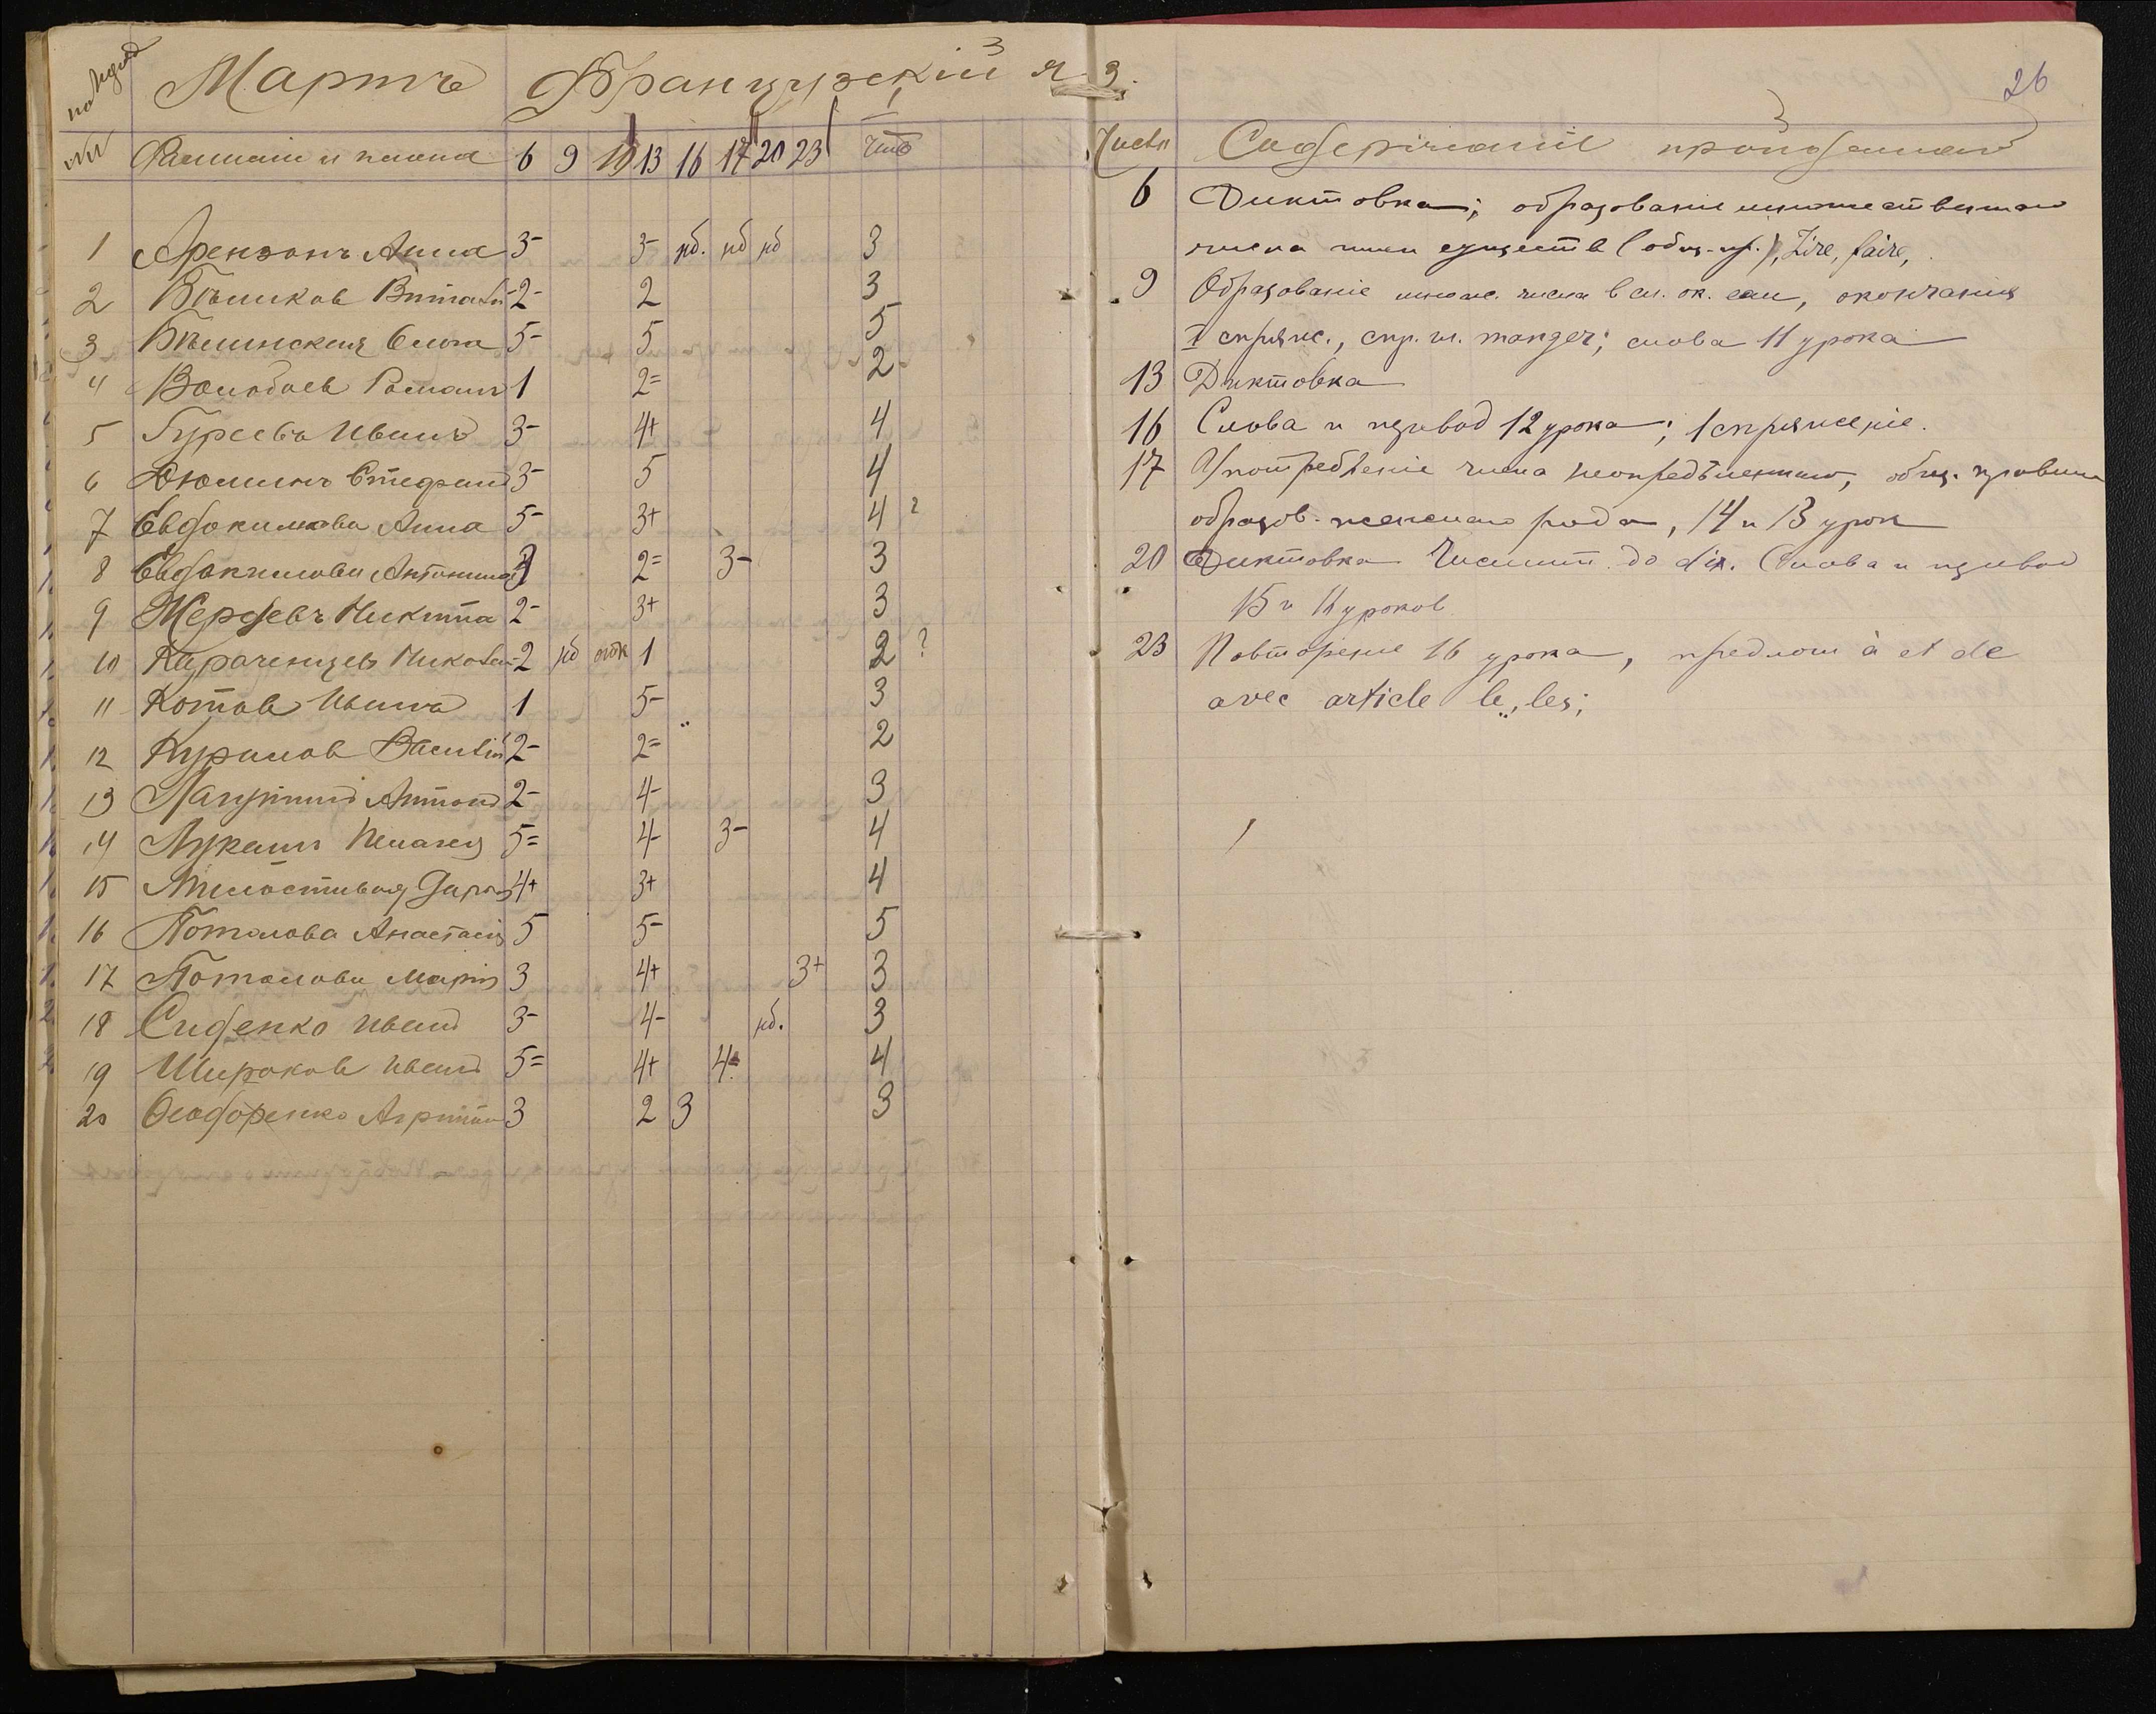 Мартъ Французскій яз.
26
№№ Фамилія и имена 6 9 10 13 16 17 20 23
1 Арензонъ Анна 3- 3- нб. нб нб 3
2 Бѣликов Виталій 2- 2 3
3 Бѣлинская Елена 5- 5 5
4 Роман 1 2= 2
5 Гуреевъ Иванъ 3- 4+ 4
6 Дюминъ Стефанъ 3- 5 4
7 Евдокимова Анна 5- 3+ 4 ?
8 Евдокимова Антонина 3 2= 3- 3
9 Жердевъ Никита 2- 3+ 3
10 Караченцев Николай 2 нб 1 2 ?
11 Котов Иванъ 1 5- 3
12 Курилов Василій 2- 2= 2
13 Лагутинъ Антонъ 2- 4- 3
14 Лукашъ Пелагея 5= 4- 3- 4
15 Милостивая Дарья 4+ 3+ 4
16 Потапова Анастасія 5 5- 5
17 Потапова Марія 3 4+ 3+ 3
18 Сиденко Иванъ 3- 4- нб. 3
19 Широков Иванъ 5= 4+ 4- 4
20 Феодоренко 3 2 3 3
Числа Содержаніе пройденнаго
6 Диктовка; образованіе множественнаго
числа имен существ (общ. пр.), Lire, faire,
9 Образованіе множ. числа в сл. ок. eau, окончания
I спряж., спр. гл. manger; слова 11 урока
13 Диктовка
16 Слова и перевод 12 урока; 1 спряжение.
17 Употребленіе члена неопредѣленнаго, общ. правила
образов. женскаго рода, 14 и 13 урок
20 Диктовка Числит. до dix. Слова и перевод
15 и 11 уроков
23 Повтореніе 16 урока, предлоги à et de
avec article le, les;